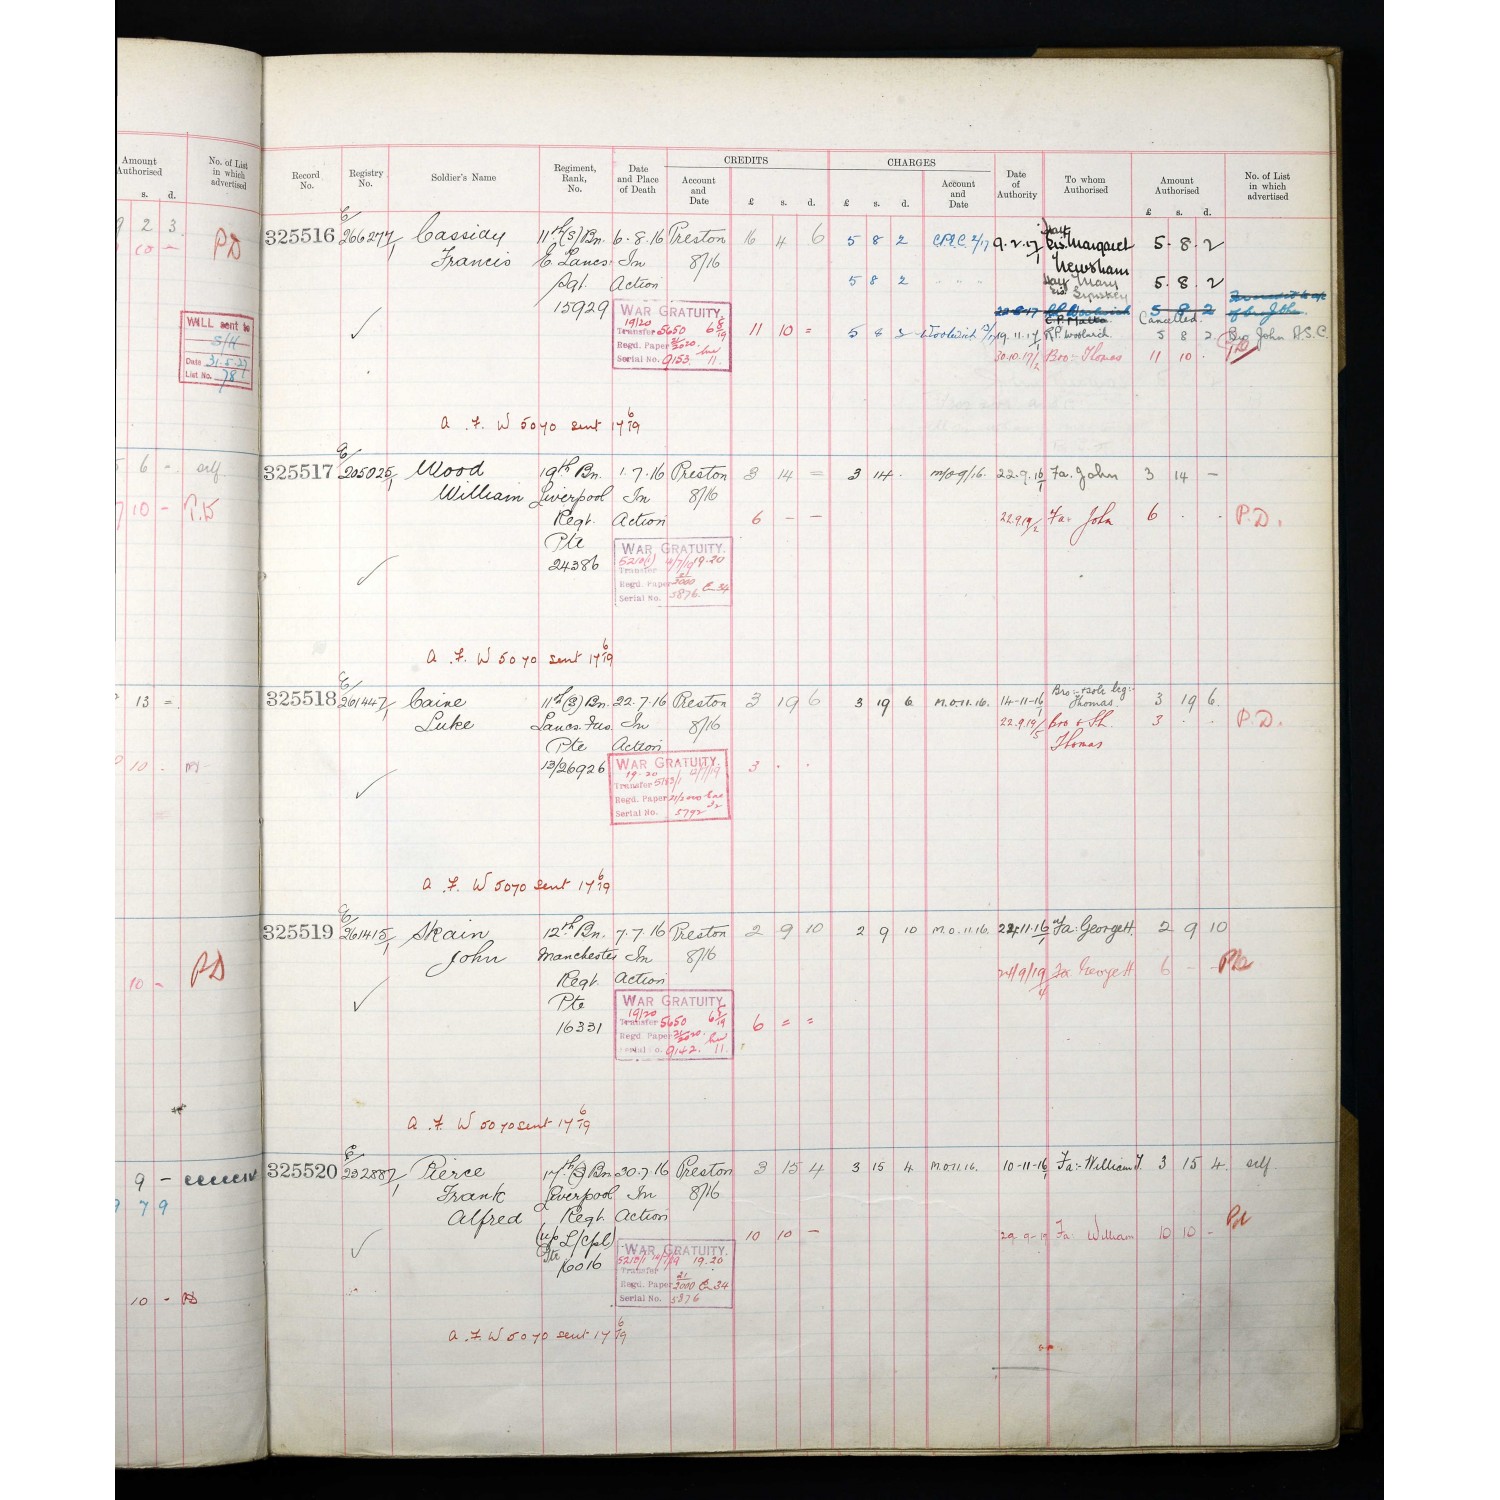 Amount Authorised
s. d.
No. of List in which advertised
2 3
10 –
PD
WILL sent to
S/H
Date 31.5.27
List No. 78
6 –
self
10 –
P.D
13 =
10 .
10 –
PD
9 –
7 9
10 – PD
Record No.
Registry No.
Soldier's Name
Regiment, Rank, No.
Date and Place of Death
CREDITS
Account and Date
£ s. d.
CHARGES
£ s. d.
Account and Date
Date of Authority
To whom Authorised
Amount Authorised
£ s. d.
No. of List in which advertised
325516 E/266277/1 Cassidy 11th (S) Bn. 6.8.16 Preston 16 4 6 5 8 2 2/17 9.2.17/1 Sis. Margaret 5.8.2
Francis E. Lancs. In 8/16 Newsham
Sgt. Action 5 8 2 Mary 5.8.2
15929
WAR GRATUITY.
19/20
Transfer 5650
Regd. Paper
Serial No. 9153. 11.
5 8 2
Cancelled.
11 10 = 5 8 2 Woolwich 19.11.17 R.P. Woolwich. 5 8 2. Bro John A.S.C.
30.10.17/2 Bro: Thomas 11 10 . PD
A.F. W 5070 sent 17 6/19
325517 E/205025/1 Wood 19th Bn. 1.7.16 Preston 3 14 = 3 14 . m/o 9/16. 22.9.16/1 Fa. John 3 14 –
William Liverpool In 8/16
Regt. Action 6 – – 22.9.19/2 Fa: John 6 . . P.D.
Pte
24386
WAR GRATUITY.
19.20
Transfer
Regd. Paper 21/3000 E 34
Serial No. 5876.
A.F. W 5070 sent 17 6/19
325518 E/261447/1 Caine 11th (S) Bn. 22.7.16 Preston 3 19 6 3 19 6 M.O.11.16. 14-11-16/1 Bro:- & sole leg:- Thomas. 3 19 6.
Luke Lancs. Fus. In 8/16 22.9.19/5 Bro & Sh. 3 . . P.D.
Pte Action Thomas
13/26926 3 . .
WAR GRATUITY.
19-20
Transfer
Regd. Paper
Serial No. 5792
A.F. W 5070 sent 17 6/19
325519 E/261415/1 Skain 12th Bn. 7.7.16 Preston 2 9 10 2 9 10 M.O.11.16. 11.16/1 Fa: George H. 2 9 10
John Manchester In 8/16
Regt Action 24/9/19/4 Fa George H 6 – –
Pte
16331 6 = =
WAR GRATUITY.
19/20
Transfer 5650
Regd Paper
Serial No. 9142. 11.
A.F. W 5070 sent 17 6/19
325520 E/232887/1 Pierce 17th (S) Bn 30.7.16 Preston 3 15 4 3 15 4 M.O.11.16. 10-11-16/1 Fa:- William T. 3 15 4. self.
Frank Liverpool In 8/16
Alfred Regt. Action
(u/p L/Cpl) 10 10 – 29.9.19 Fa: William 10 10 – Pd
Pte
16016
WAR GRATUITY.
19.20
Transfer
Regd. Paper 21/3000 E 34
Serial No. 5876
A.F. W 5070 sent 17 6/19